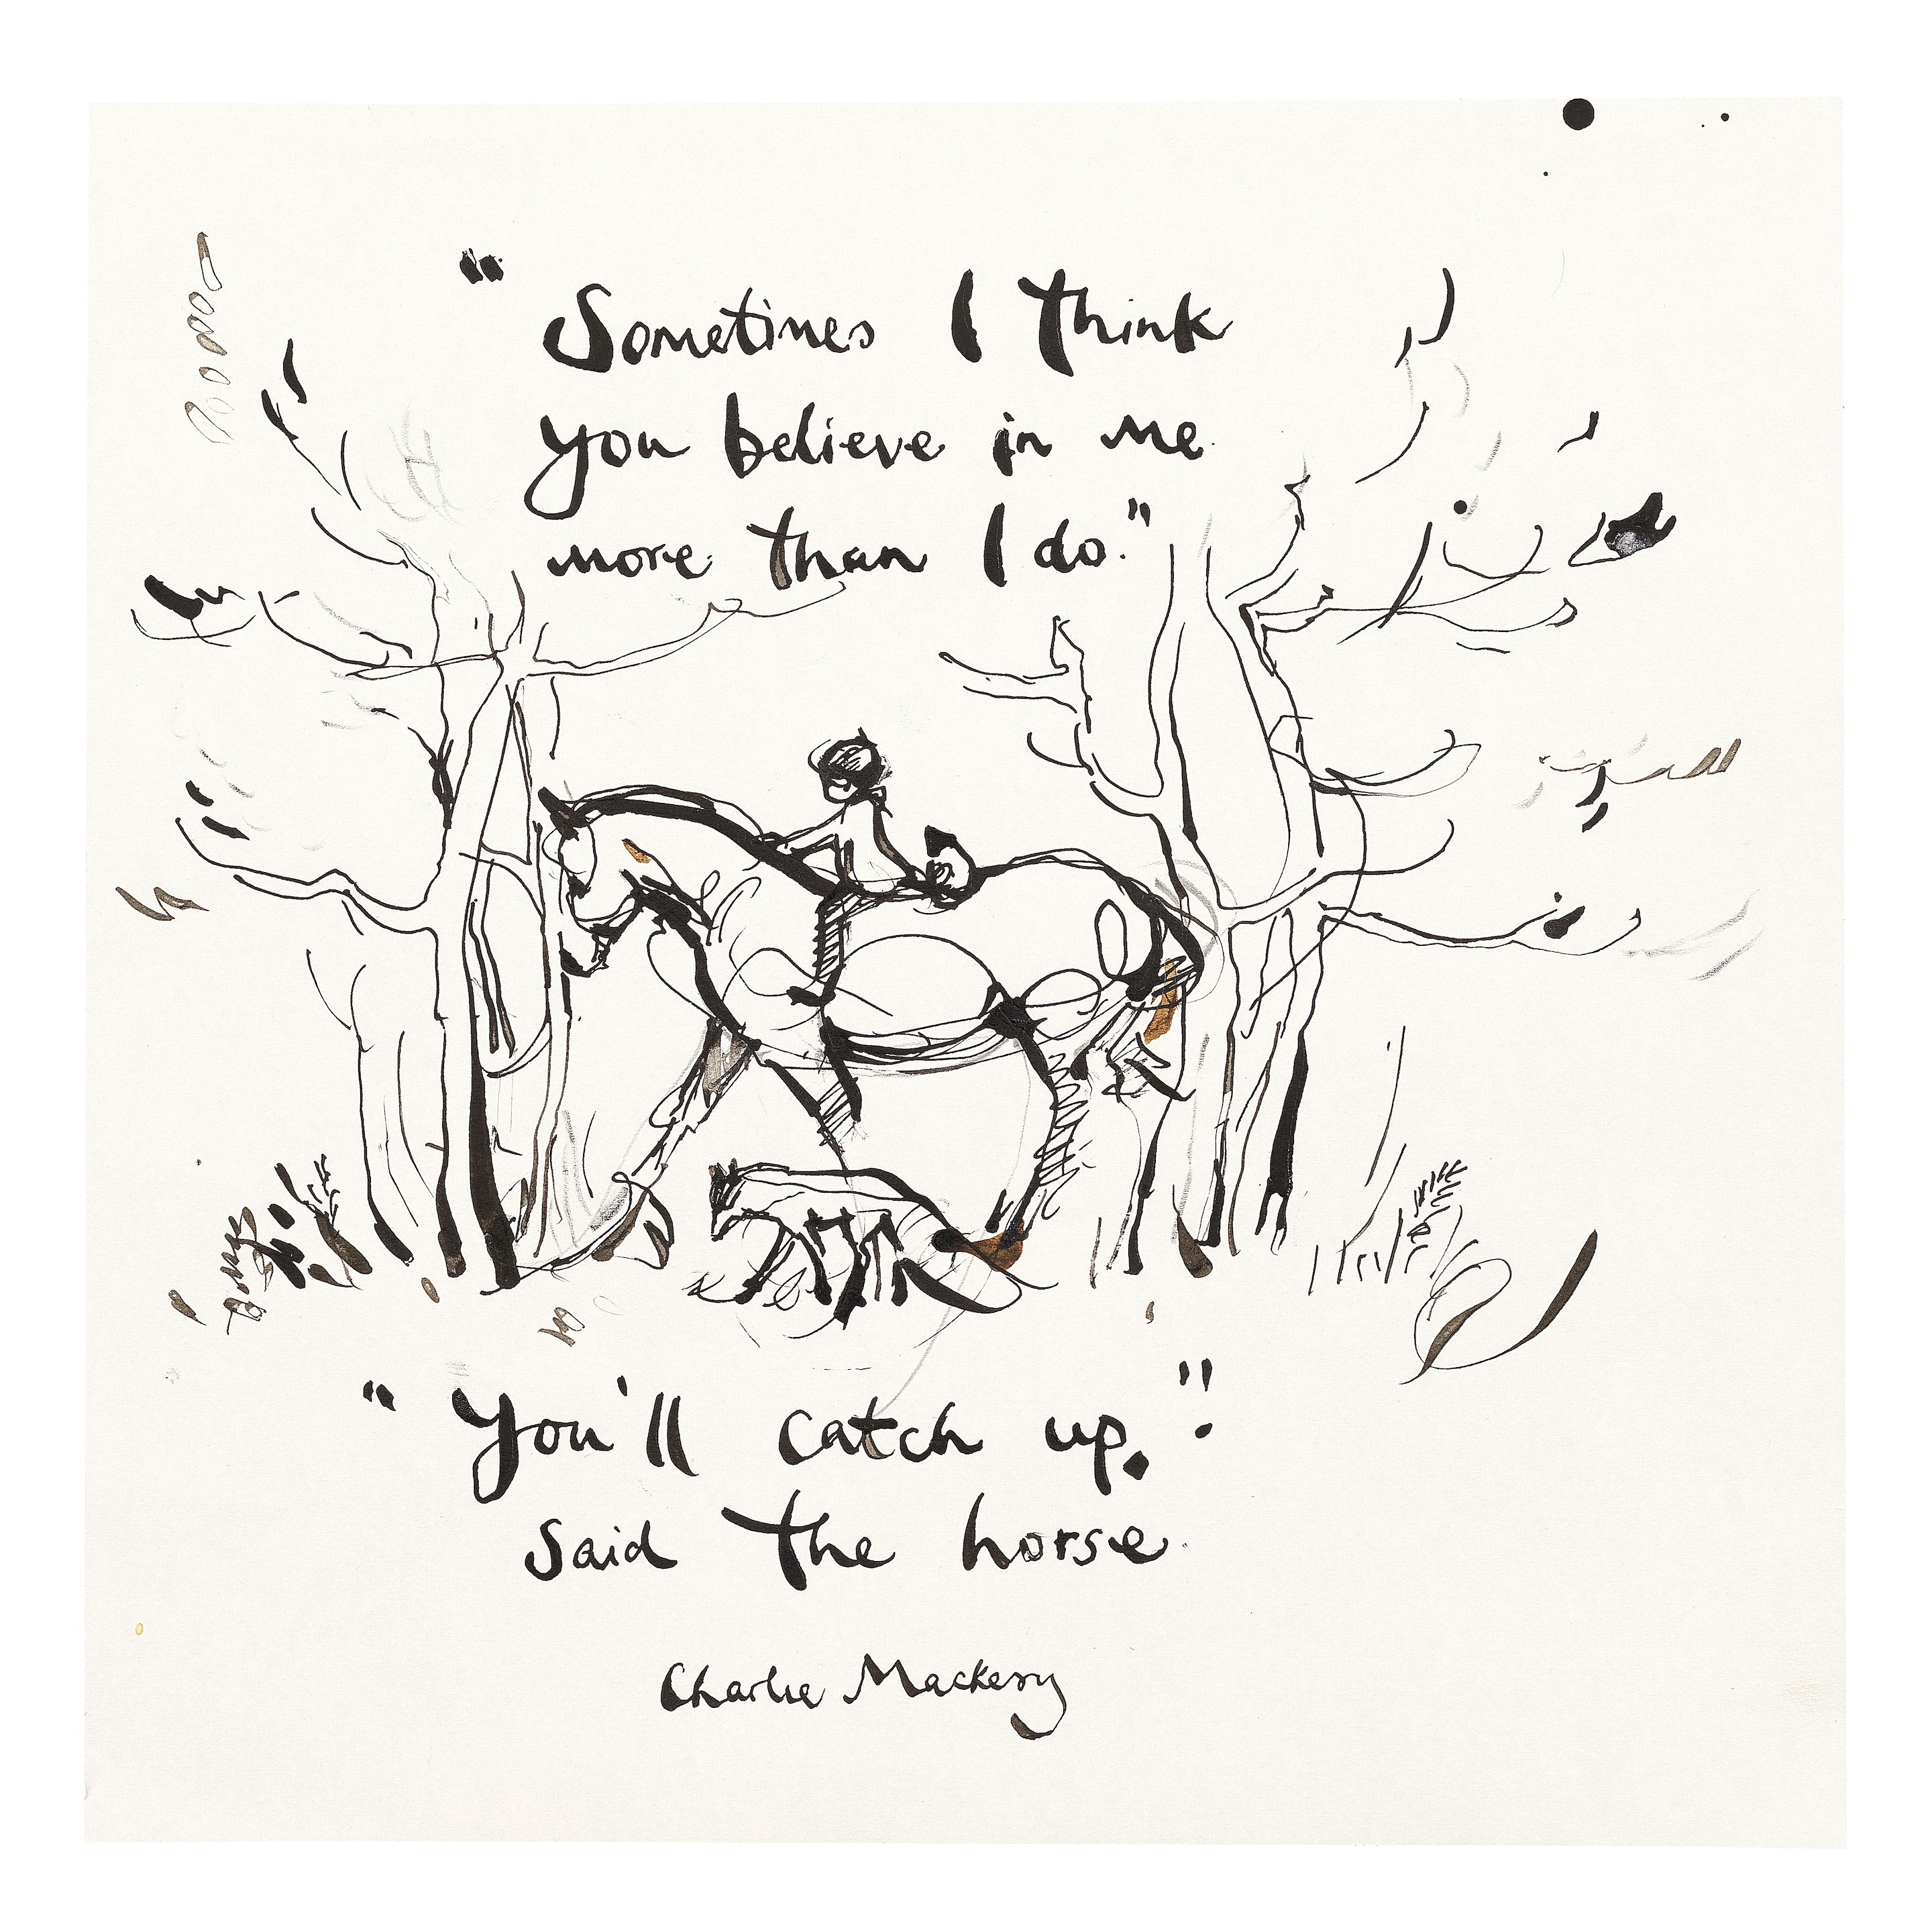 "Sometimes I think
you believe in me
more than I do."
"You'll catch up."
said the horse.
Charlie Mackesy